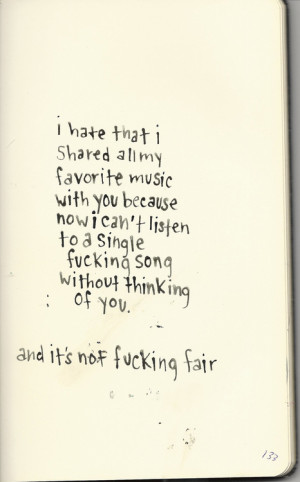 i hate that i
shared all my
favorite music
with you because
now i can't listen
to a single
fucking song
without thinking
of you.
and it's not fucking fair
133